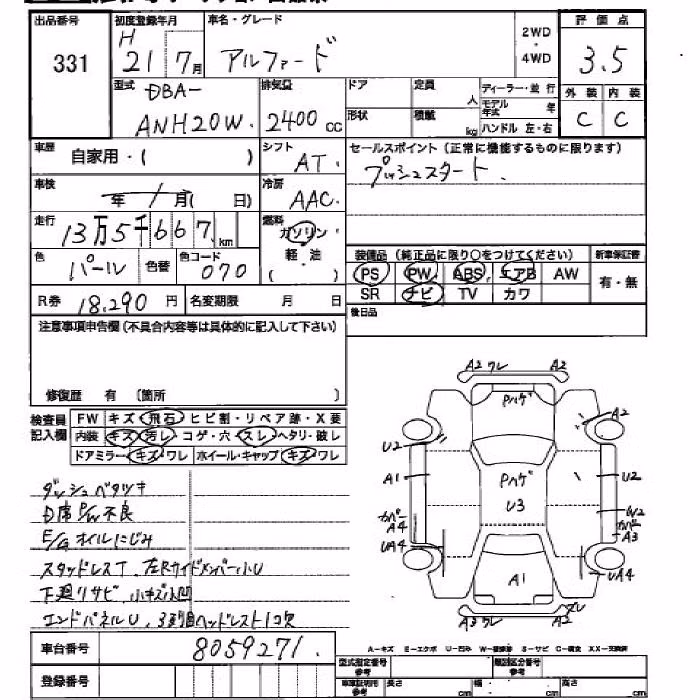 出品番号 331
初度登録年月 H 21 7月
車名・グレード アルファード
2WD・4WD
評価点 3.5
外装 C 内装 C
型式 DBA- ANH20W.
排気量 2400 cc
ドア 定員 人
形状 積載 kg
ディーラー・並行
モデル年式 年
ハンドル 左・右
車歴 自家用・( )
シフト AT.
セールスポイント (正常に機能するものに限ります)
プッシュスタート.
車検 年 / 月( 日)
冷房 AAC.
走行 13万5千667 km
燃料 ガソリン 軽・油 ( )
色 パール 色替 色コード 070
装備品 (純正品に限り○をつけてください) 新車保証書
PS PW ABS エアB AW 有・無
SR ナビ TV カワ
R券 18,290 円 名変期限 月 日
後日品
注意事項申告欄 (不具合内容等は具体的に記入して下さい)
修復歴 有 〔箇所 〕
検査員記入欄
FW キズ・飛石・ヒビ割・リペア跡・X要
内装 キズ・汚レ・コゲ・穴・スレ・ヘタリ・破レ
ドアミラー・キズ・ワレ ホイール・キャップ・キズ・ワレ
ダッシュベタツキ
D席P/W不良
E/Gオイルにじみ
スタッドレスT. 左Rサイドメンバー小U
下廻りサビ、小キズ小凹
エンドパネルU、3列目ヘッドレスト1コ欠
A2 ワレ A2
Pハゲ
A2
U2
A1
Pハゲ
U3
U2
W2
カバー A4
カバー A3
UA4
UA4
A1
A3 ワレ A2
A-キズ E-エクボ U-凹み W-補修跡 S-サビ C-腐食 XX-交換済
車台番号 8059271.
登録番号
型式指定番号 参考 類別区分番号 参考
車庫証明用 参考 長さ cm 幅 cm 高さ cm